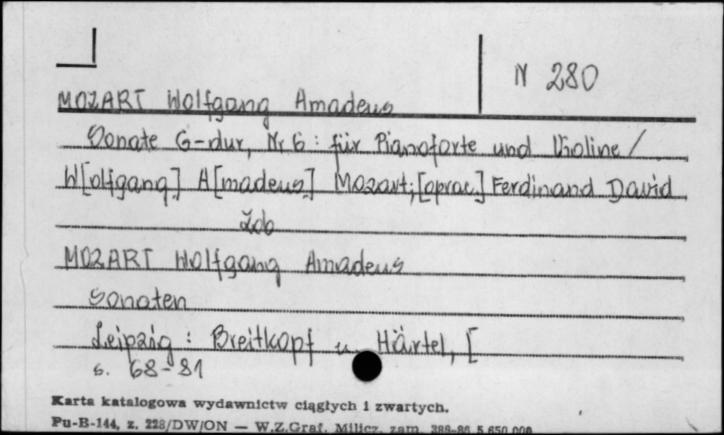 N 280
MOZART Wolfgang Amadeus
Sonate G-dur, Nr 6 : für Pianoforte und Violine /
W[olfgang] A[madeus] Mozart; [oprac.] Ferdinand David
Zob
MOZART Wolfgang Amadeus
Sonaten
Leipzig : Breitkopf u. Härtel, [
s. 68-81
Karta katalogowa wydawnictw ciągłych i zwartych.
Pu-B-144, z. 228/DW/ON — W.Z.Graf. Milicz, zam. 388-86 5.650.000